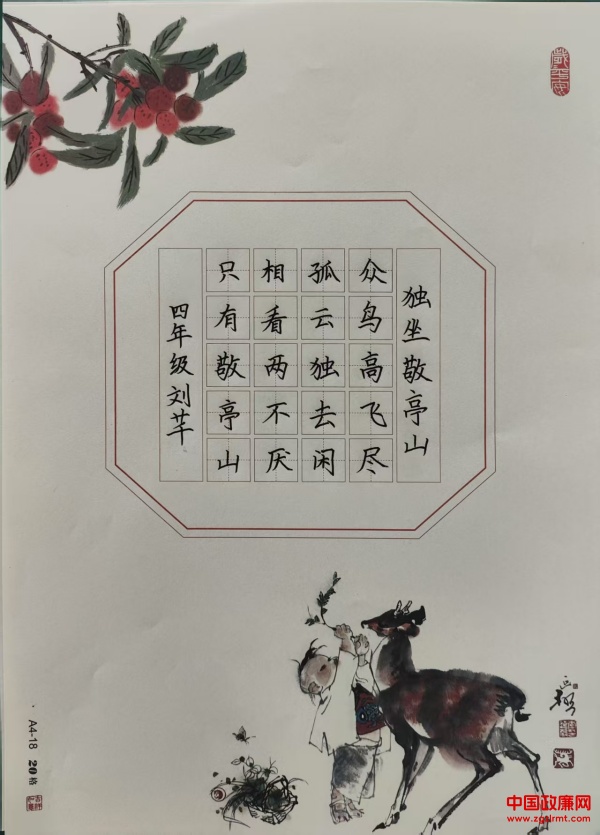 独坐敬亭山
众鸟高飞尽
孤云独去闲
相看两不厌
只有敬亭山
四年级刘芊
A4-18 20格
中国政廉网
www.zgzlrmt.com